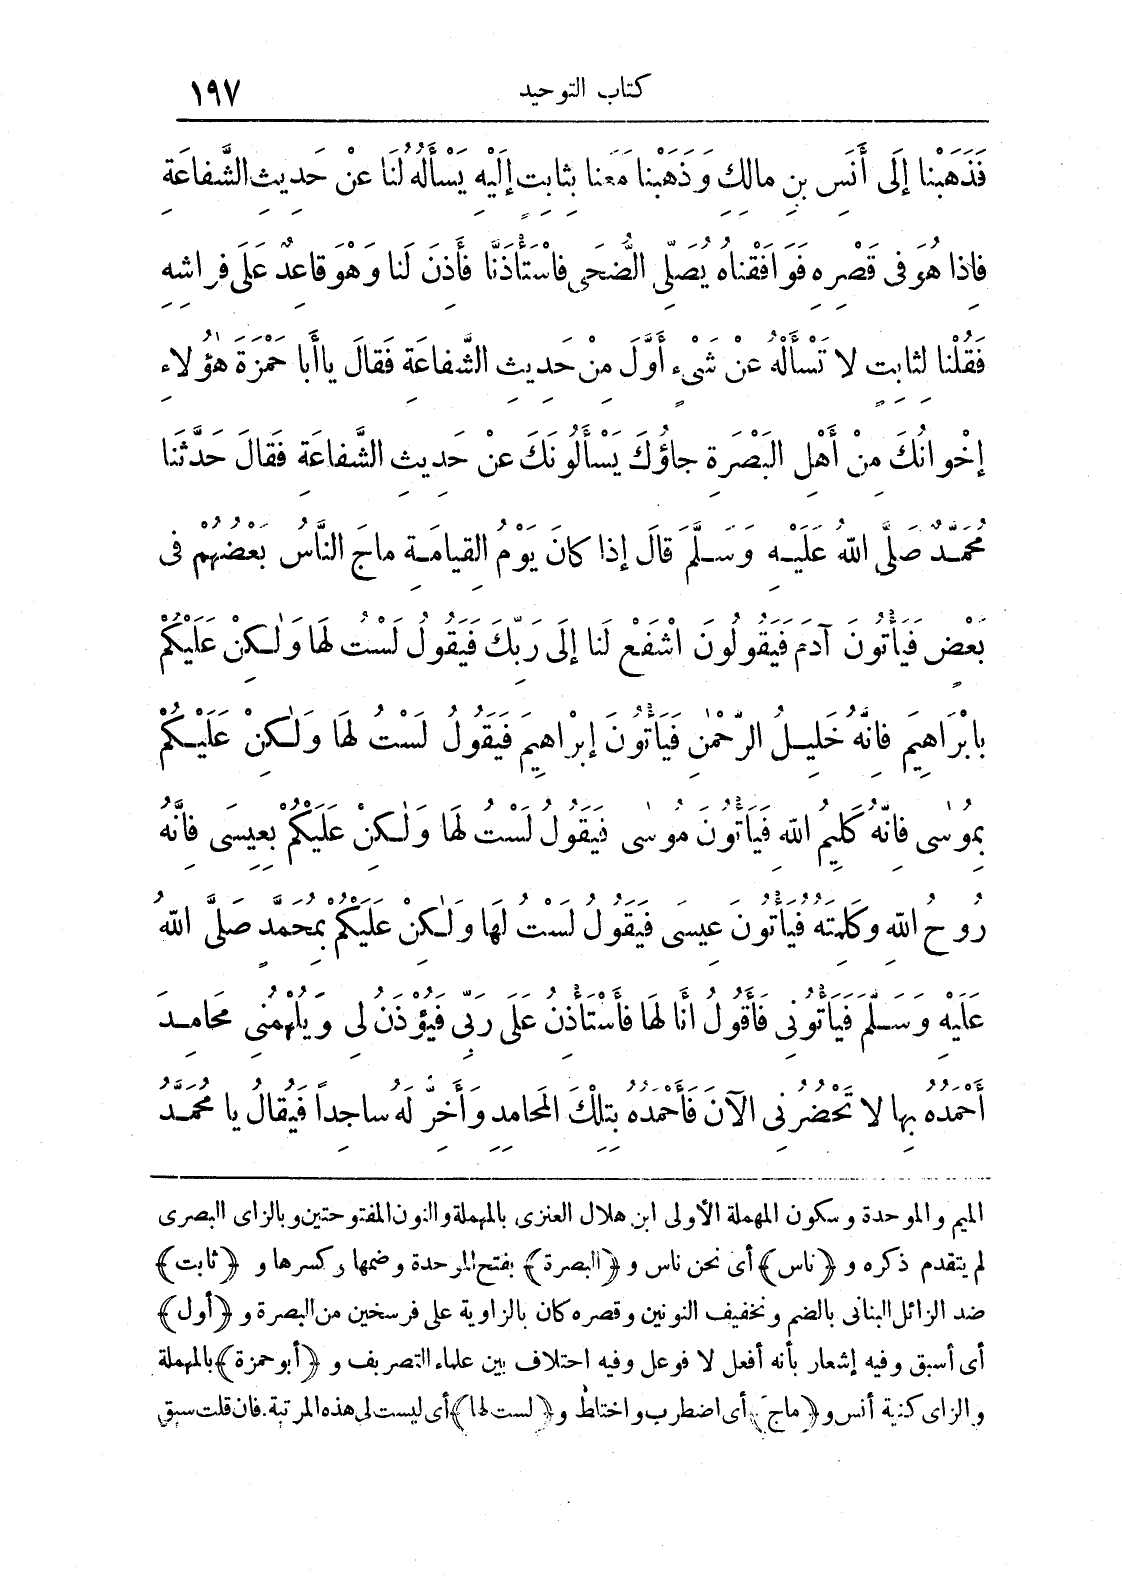 كتاب التوحيد ١٩٧
فَذَهَبْنا إلَى أَنَسِ بنِ مالِكٍ وَذَهَبْنا مَعَنا بِثابِتٍ إلَيْهِ يَسْأَلُهُ لَنَا عَنْ حَدِيثِ الشَّفاعَةِ
فاِذا هُوَ فى قَصْرِهِ فَوَافَقْناهُ يُصَلِّى الضُّحَى فاسْتَأْذَنَّا فأَذِنَ لَنا وَهْوَ قاعِدٌ عَلَى فِرَاشِهِ
فَقُلْنا لِثابِتٍ لا تَسْأَلْهُ عَنْ شَىْءٍ أَوَّلَ مِنْ حَدِيثِ الشَّفاعَةِ فَقالَ ياأَبا حَمْزَةَ هٰؤُلاءِ
إخْوانُكَ مِنْ أَهْلِ البَصْرَةِ جاؤُكَ يَسْأَلُونَكَ عَنْ حَدِيثِ الشَّفاعَةِ فَقالَ حَدَّثَنا
مُحَمَّدٌ صَلَّى اللهُ عَلَيْهِ وَسَلَّمَ قَالَ إذا كانَ يَوْمُ القِيامَةِ ماجَ النَّاسُ بَعْضُهُمْ فى
بَعْضٍ فَيَأْتُونَ آدَمَ فَيَقُولُونَ اشْفَعْ لَنا إلَى رَبِّكَ فَيَقُولُ لَسْتُ لَها وَلٰكِنْ عَلَيْكُمْ
بابْرَاهِيمَ فانَّهُ خَلِيلُ الرَّحْمٰنِ فَيَأْتُونَ إبْراهِيمَ فَيَقُولُ لَسْتُ لَها وَلٰكِنْ عَلَيْكُمْ
بِمُوسٰى فانَّهُ كَلِيمُ اللهِ فَيَأْتُونَ مُوسٰى فَيَقُولُ لَسْتُ لَها وَلٰكِنْ عَلَيْكُمْ بِعِيسَى فانَّهُ
رُوحُ اللهِ وَكَلِمَتُهُ فَيَأْتُونَ عِيسَى فَيَقُولُ لَسْتُ لَها وَلٰكِنْ عَلَيْكُمْ بِمُحَمَّدٍ صَلَّى اللهُ
عَلَيْهِ وَسَلَّمَ فَيَأْتُونِى فَأَقُولُ أَنَا لَها فأَسْتَأْذِنُ عَلَى رَبِّى فَيُؤْذَنُ لِى وَيُلْهِمُنِى مَحامِدَ
أَحْمَدُهُ بِها لا تَحْضُرُنِى الآنَ فَأَحْمَدُهُ بِتِلْكَ المَحامِدِ وَأَخِرُّ لَهُ ساجِداً فَيُقالُ يا مُحَمَّدُ
الميم والموحدة وسكون المهملة الأولى ابن هلال العنزى بالمهملة والنون المفتوحتين وبالزاى البصرى
لم يتقدم ذكره و ﴿ناس﴾ أى نحن ناس و ﴿البصرة﴾ بفتح الموحدة وضمها وكسرها و ﴿ثابت﴾
ضد الزائل البنانى بالضم وتخفيف النونين وقصره كان بالزاوية على فرسخين من البصرة و ﴿أول﴾
أى أسبق وفيه إشعار بأنه أفعل لا فوعل وفيه اختلاف بين علماء التصريف و ﴿أبو حمزة﴾ بالمهملة
والزاى كنية أنس و ﴿ماج﴾ أى اضطرب واختلط و ﴿لست لها﴾ أى ليست لى هذه المرتبة. فان قلت سبق